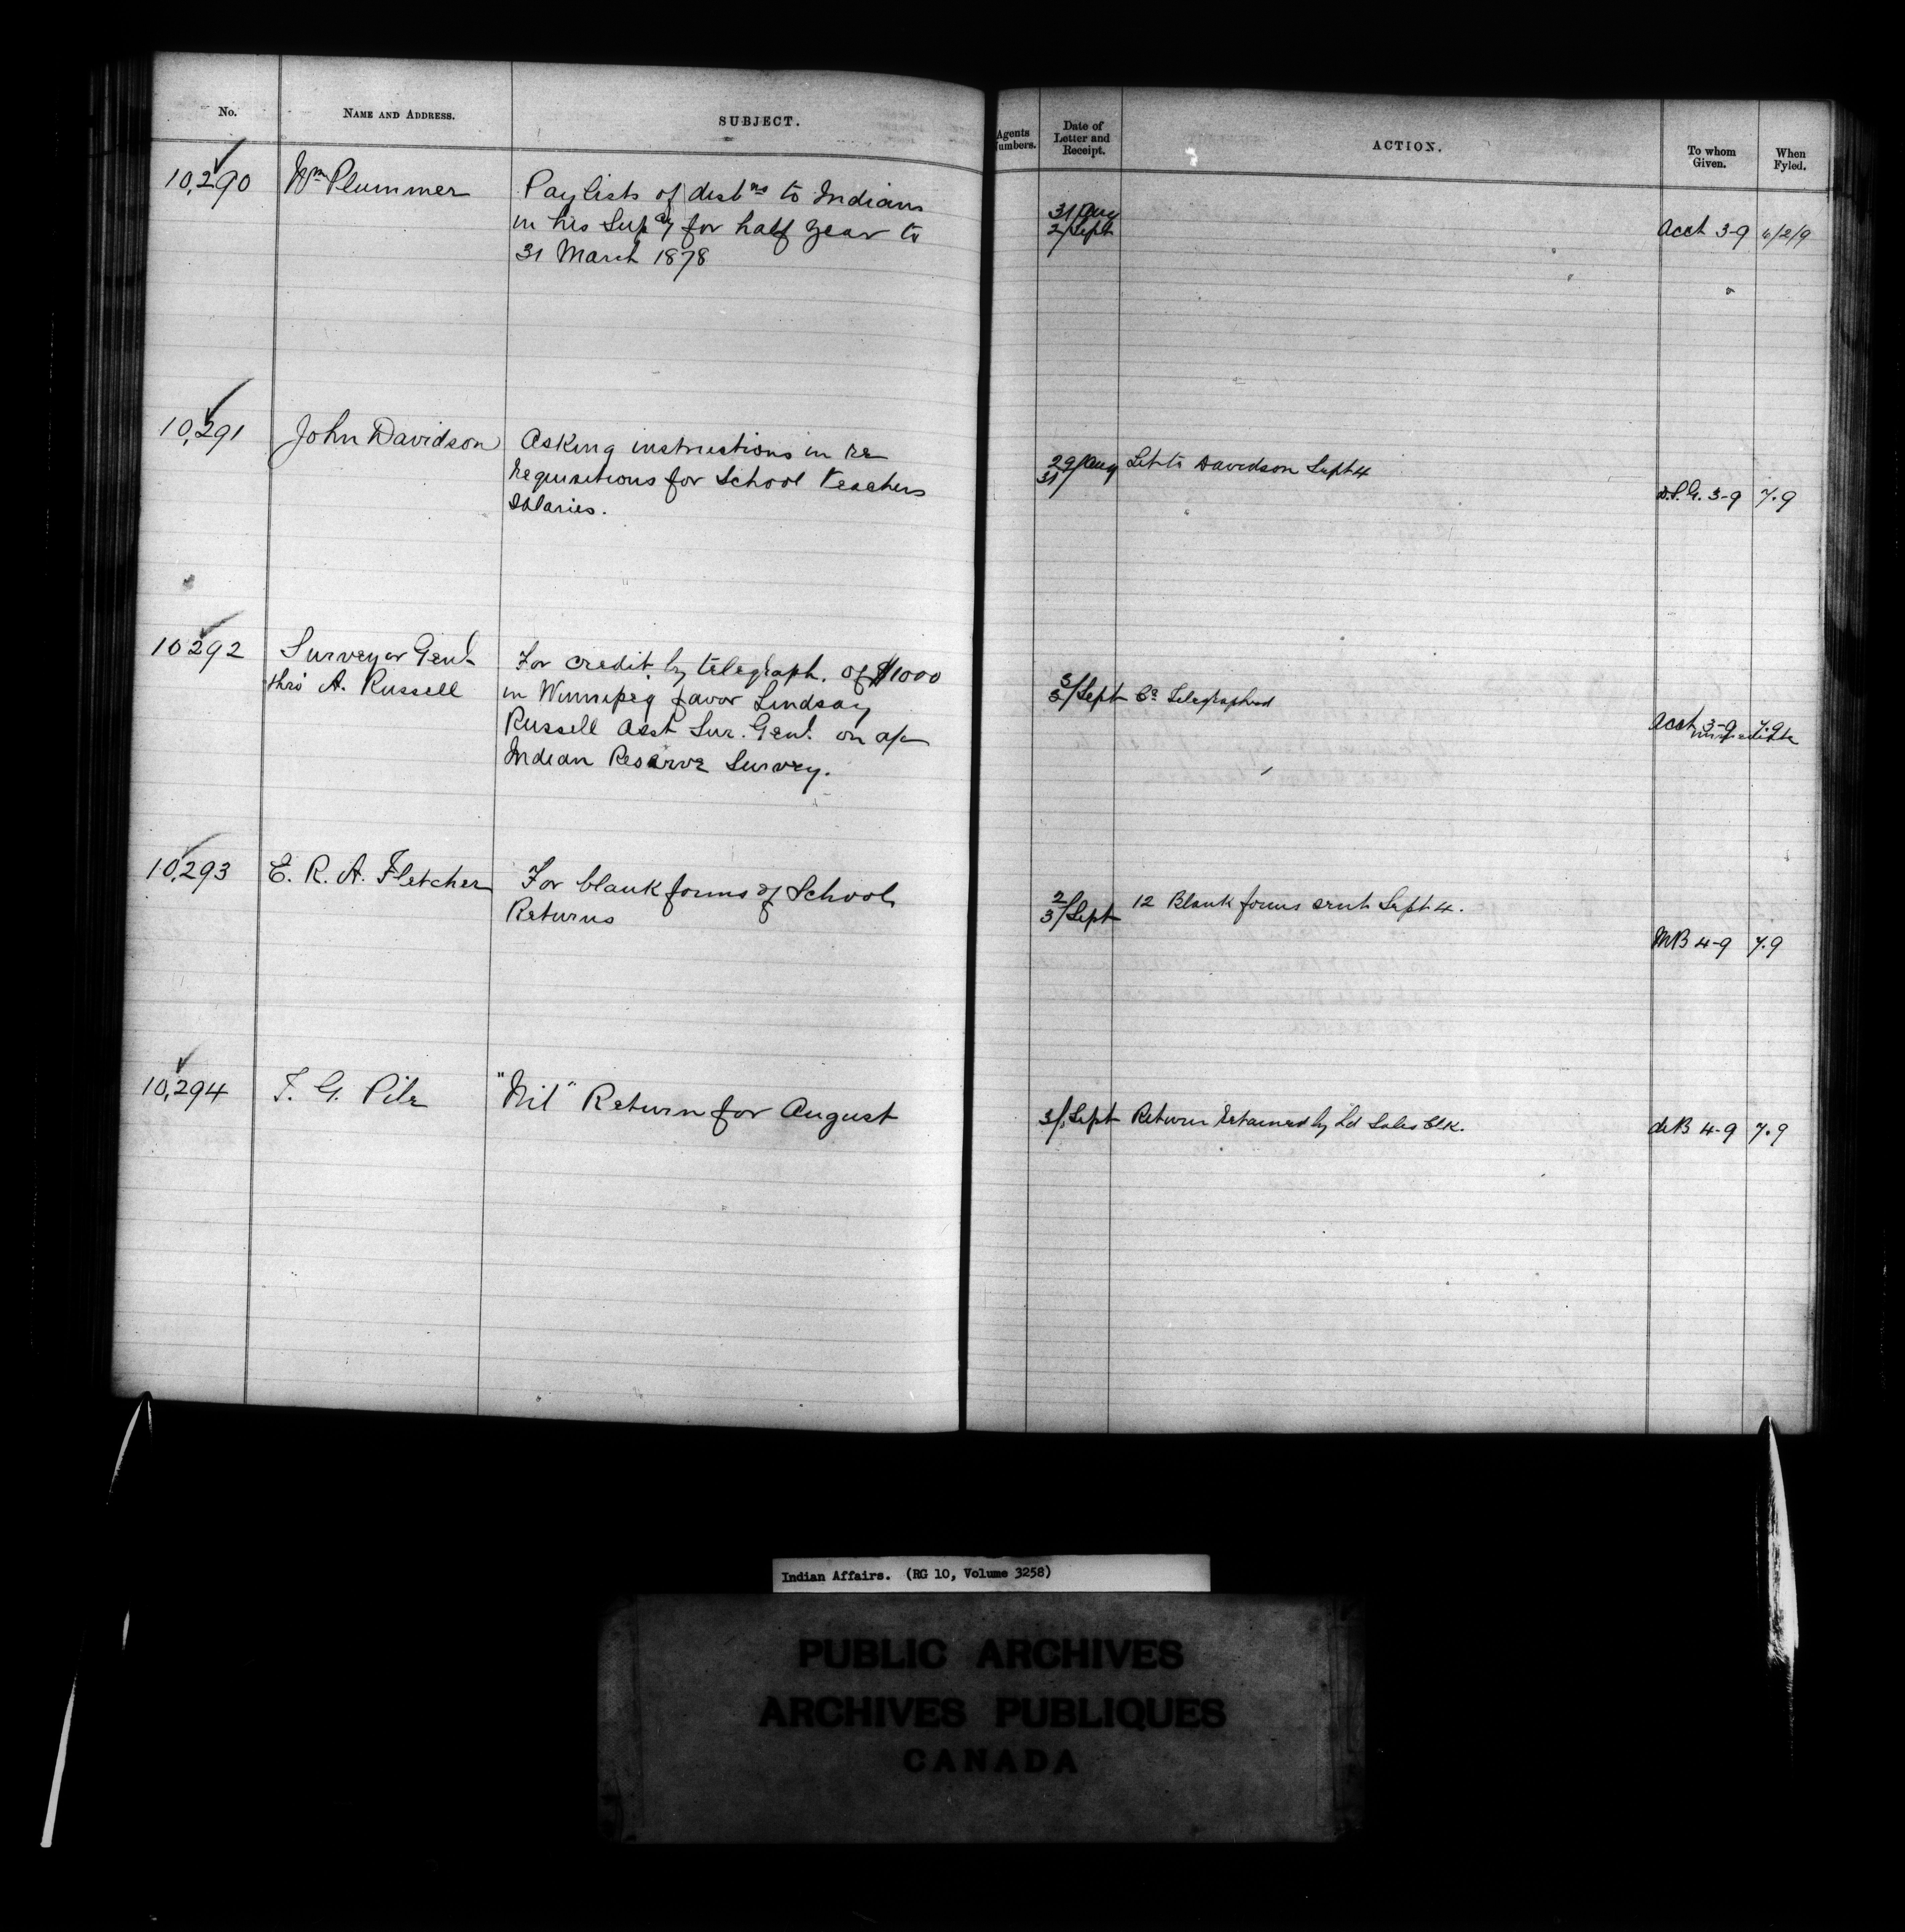 No.
NAME AND ADDRESS.
SUBJECT.
Agents
umbers.
Date of
Letter and
Receipt.
ACTION.
To whom
Given.
When
Fyled.
10,290
Wm Plummer
Pay lists of distns to Indians
in his Supcy for half year to
31 March 1878
31/Aug
2/Sept
Acct 3-9
10,291
John Davidson
Asking instructions in re
requisitions for School Teachers
Salaries.
29/Aug
31
Let to Davidson Sept 4
3-9
7.9
10292
Surveyor Genl.
thro' A. Russell
For credit, by telegraph, of $1000
in Winnipeg favor Lindsay
Russell Asst Sur. Genl. on a/c
Indian Reserve Survey.
3
3/Sept
Telegraphed
Acct 3-9
7.9
10,293
E. R. A. Fletcher
For blank forms of School
Returns
2
3/Sept
12 Blank forms sent Sept 4.
MB 4-9
7.9
10,294
F. G. Pile
"Nil" Return for August
3/Sept
Return retained by Ld Sales Clk.
deB 4-9
7.9
Indian Affairs. (RG 10, Volume 3258)
PUBLIC ARCHIVES
ARCHIVES PUBLIQUES
CANADA